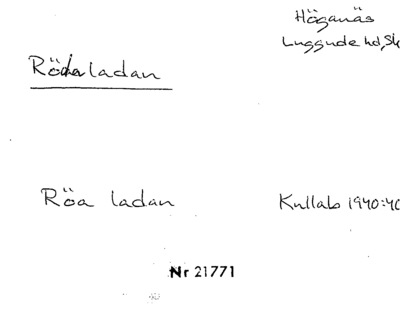 Höganäs
Luggude hd, Sk
Röda ladan
Röa ladan
Kullab 1940:40
Nr 21771